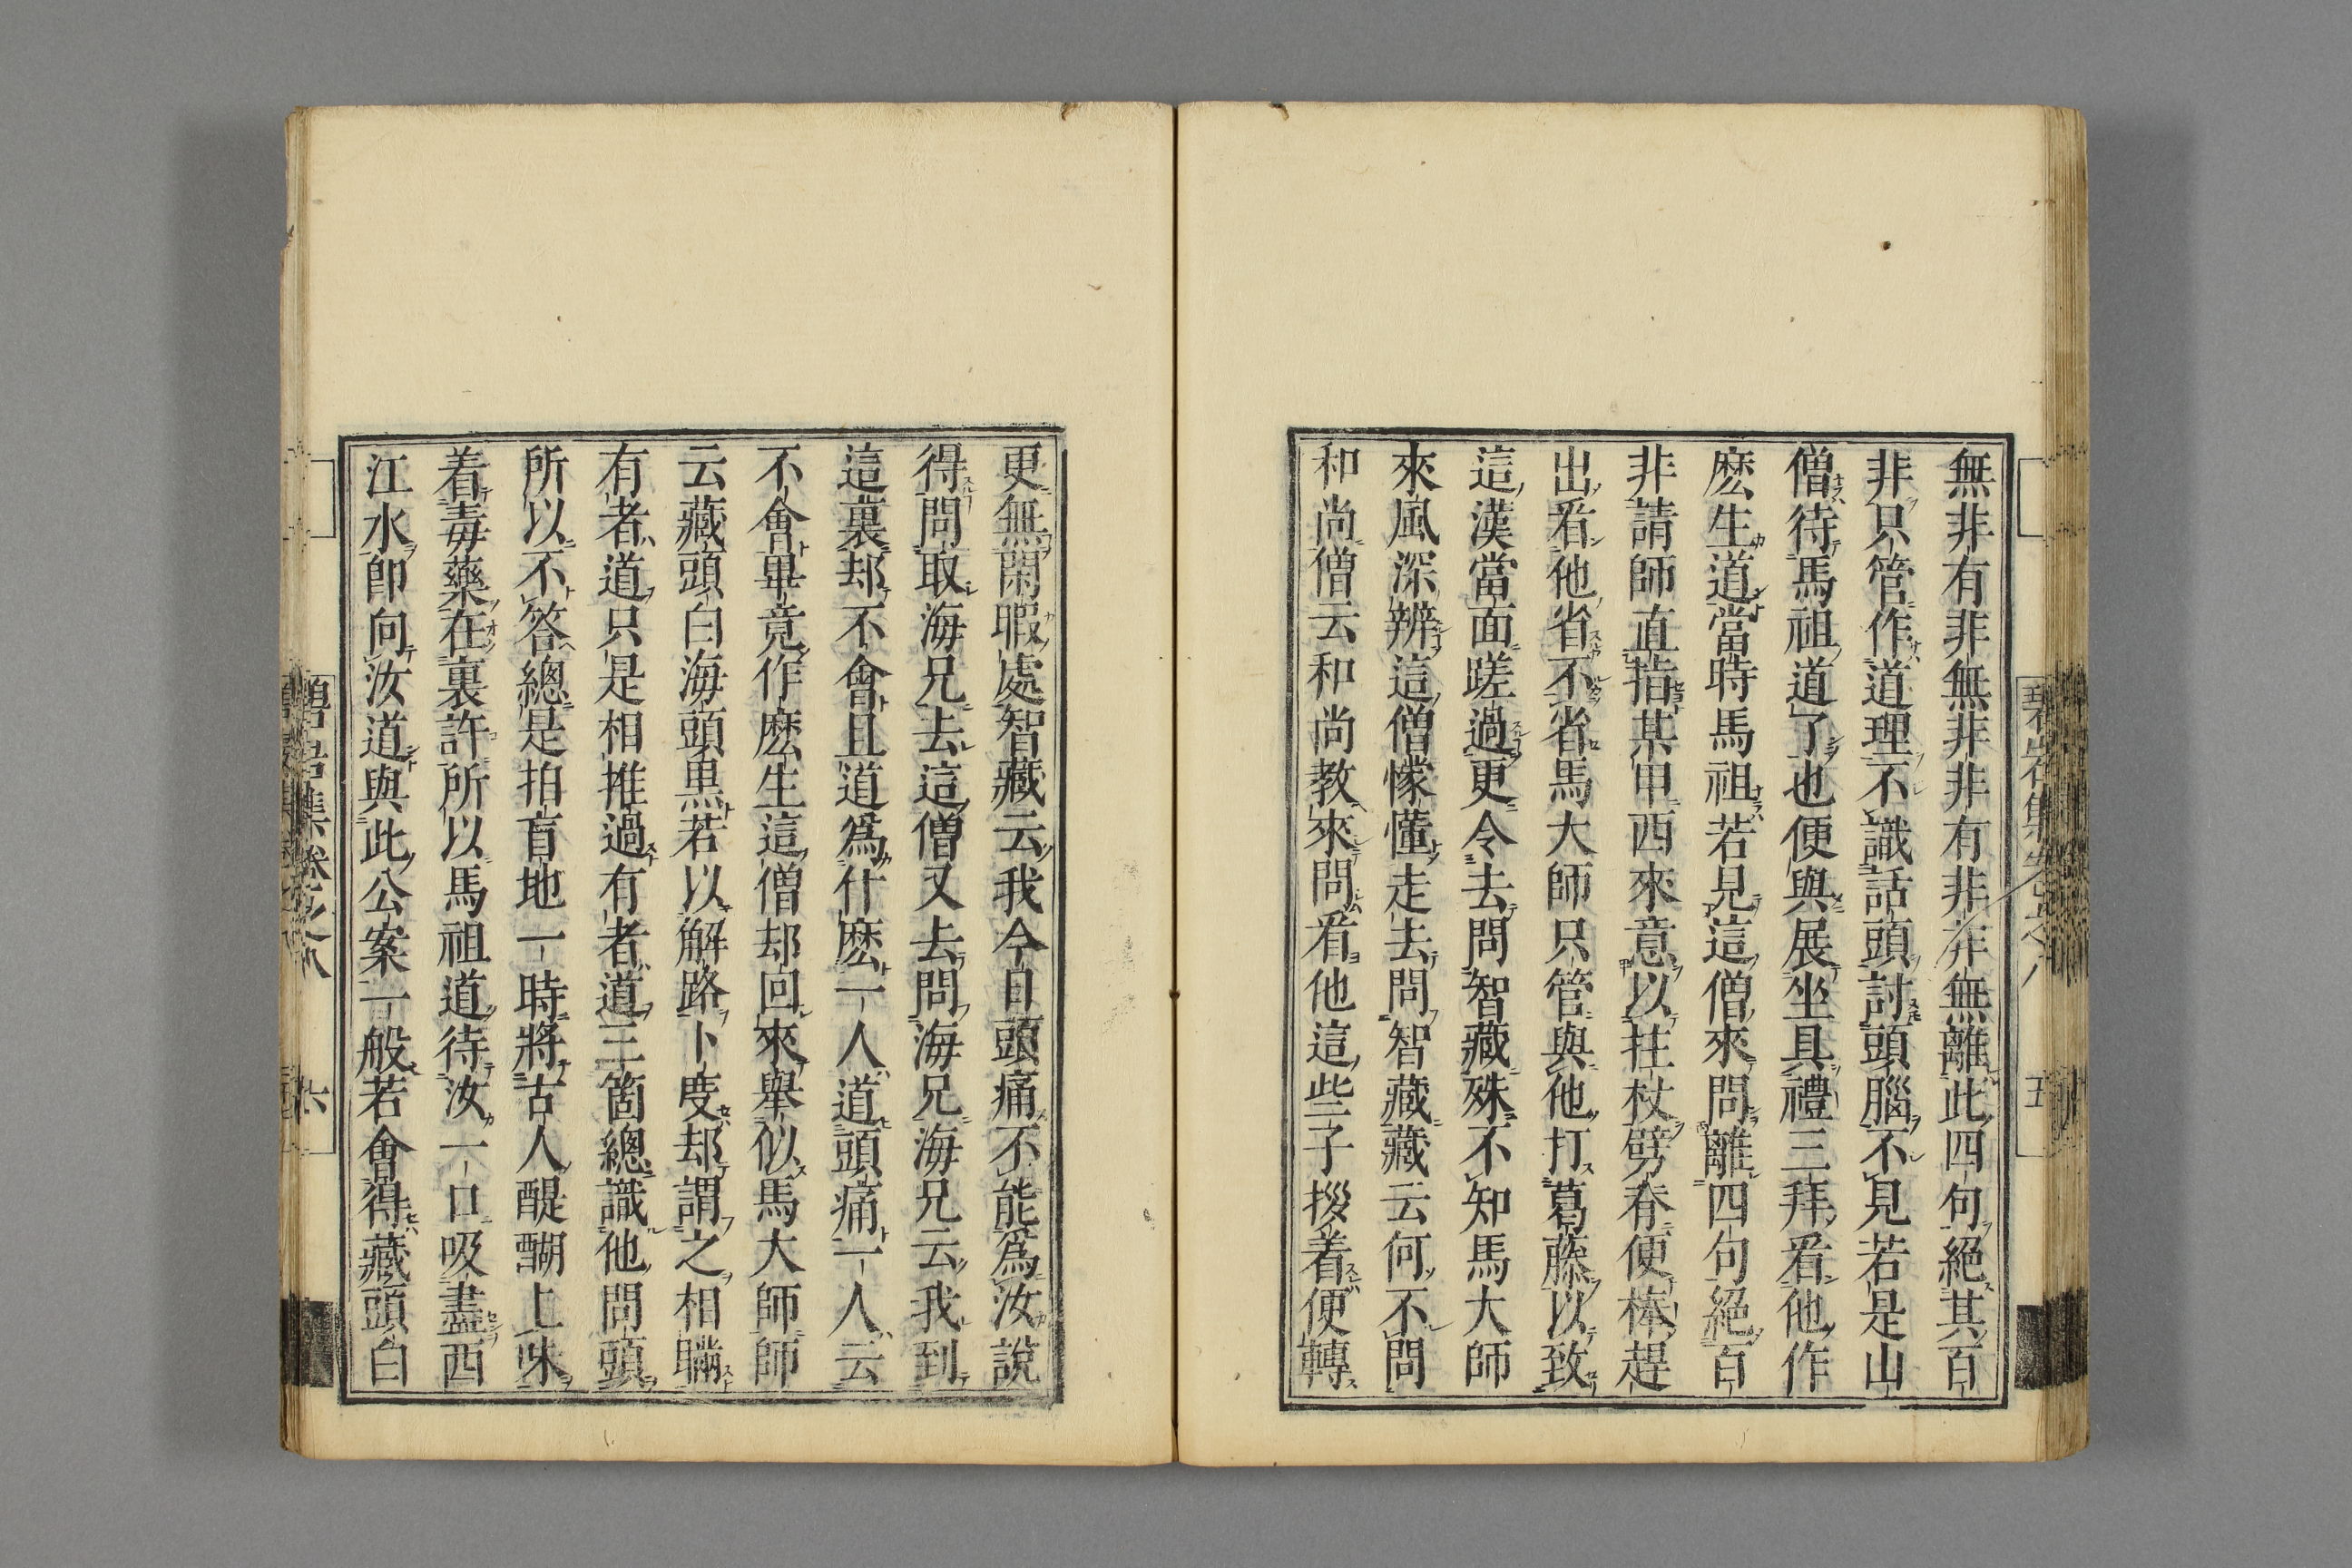 無非有非無非非有非非無離此四句絕其百
非只管作道理不識話頭討頭腦不見若是山
僧待馬祖道了也便與展坐具禮三拜看他作
麽生道當時馬祖若見這僧來問離四句絕百
非請師直指某甲西來意以拄杖劈脊便棒趕
出看他省不省馬大師只管與他打葛藤以致
這漢當面蹉過更令去問智藏殊不知馬大師
來風深辨這僧懞懂走去問智藏藏云何不問
和尚僧云和尚教來問看他這些子拶着便轉
更無閑暇處智藏云我今日頭痛不能爲汝說
得問取海兄去這僧又去問海兄海兄云我到
這裏却不會且道爲什麽一人道頭痛一人云
不會畢竟作麽生這僧却回來舉似馬大師師
云藏頭白海頭黒若以解路卜度却謂之相瞞
有者道只是相推過有者道三箇總識他問頭
所以不答總是拍盲地一時將古人醍醐上味
着毒藥在裏許所以馬祖道待汝一口吸盡西
江水卽向汝道與此公案一般若會得藏頭白
碧岩集卷之八
五
六